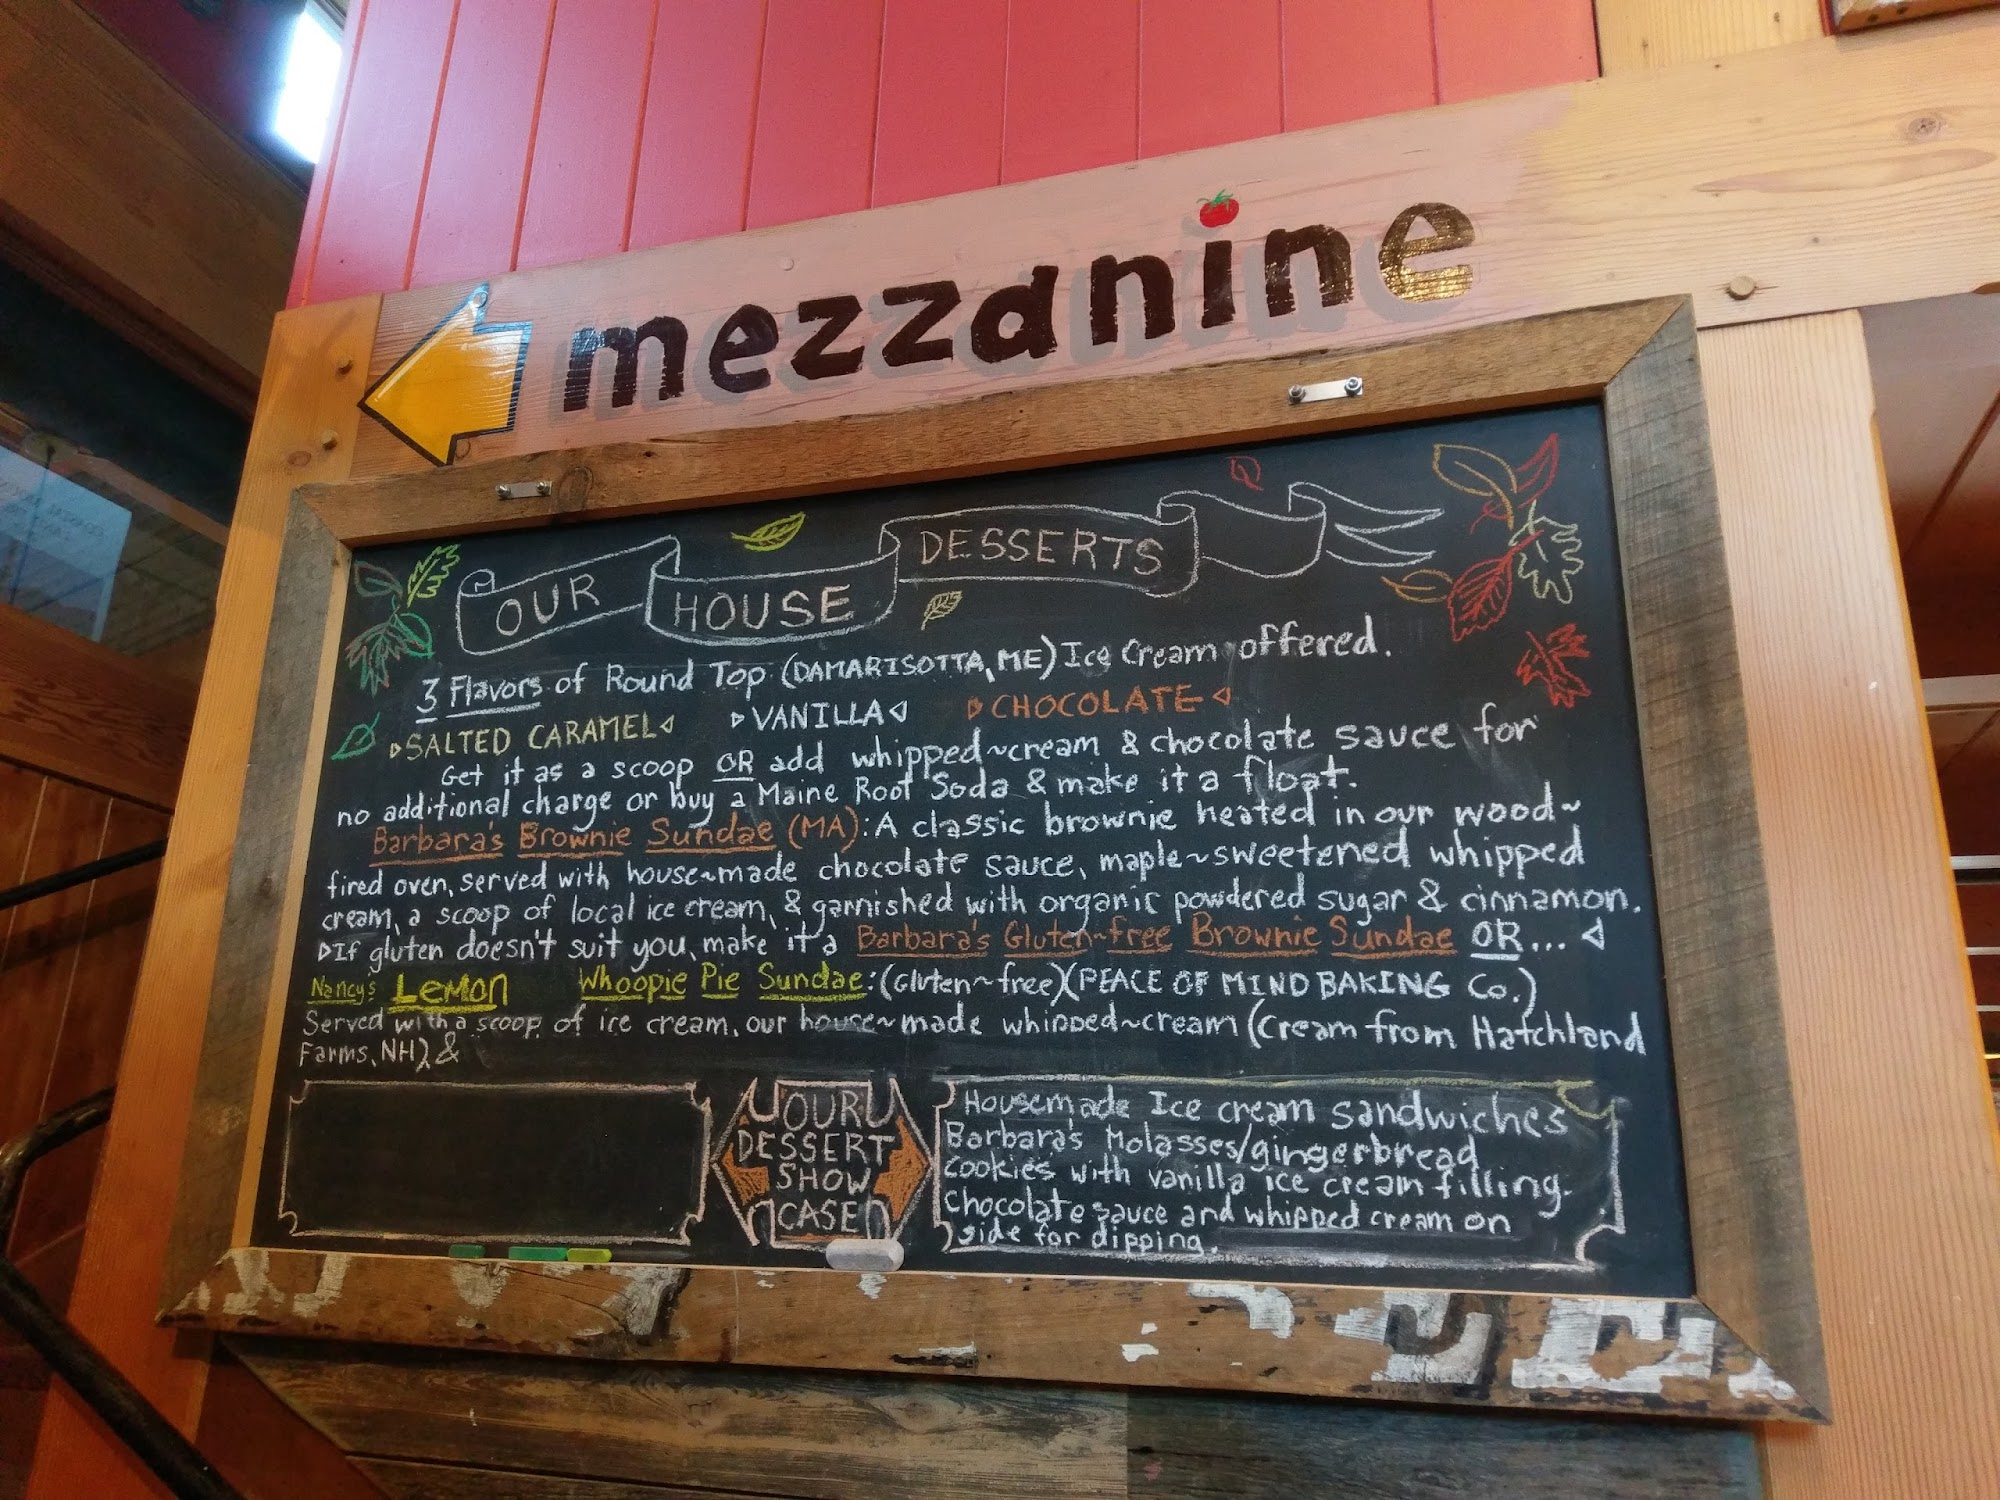 mezzanine
OUR HOUSE DESSERTS
3 Flavors of Round Top (DAMARISOTTA, ME) Ice Cream offered.
▹SALTED CARAMEL◃ ▹VANILLA◃ ▹CHOCOLATE◃
Get it as a scoop OR add whipped~cream & chocolate sauce for
no additional charge or buy a Maine Root Soda & make it a float.
Barbara's Brownie Sundae (MA): A classic brownie heated in our wood~
fired oven, served with house~made chocolate sauce, maple~sweetened whipped
cream, a scoop of local ice cream, & garnished with organic powdered sugar & cinnamon.
▹If gluten doesn't suit you, make it a Barbara's Gluten~free Brownie Sundae OR... ◃
Nancy's Lemon Whoopie Pie Sundae: (Gluten~free)(PEACE OF MIND BAKING Co.)
Served with a scoop of ice cream, our house~made whipped~cream (Cream from Hatchland
Farms, NH), &
OUR
DESSERT
SHOW
CASE
Housemade Ice cream sandwiches
Barbara's Molasses/gingerbread
Cookies with vanilla ice cream filling.
Chocolate sauce and whipped cream on
side for dipping.